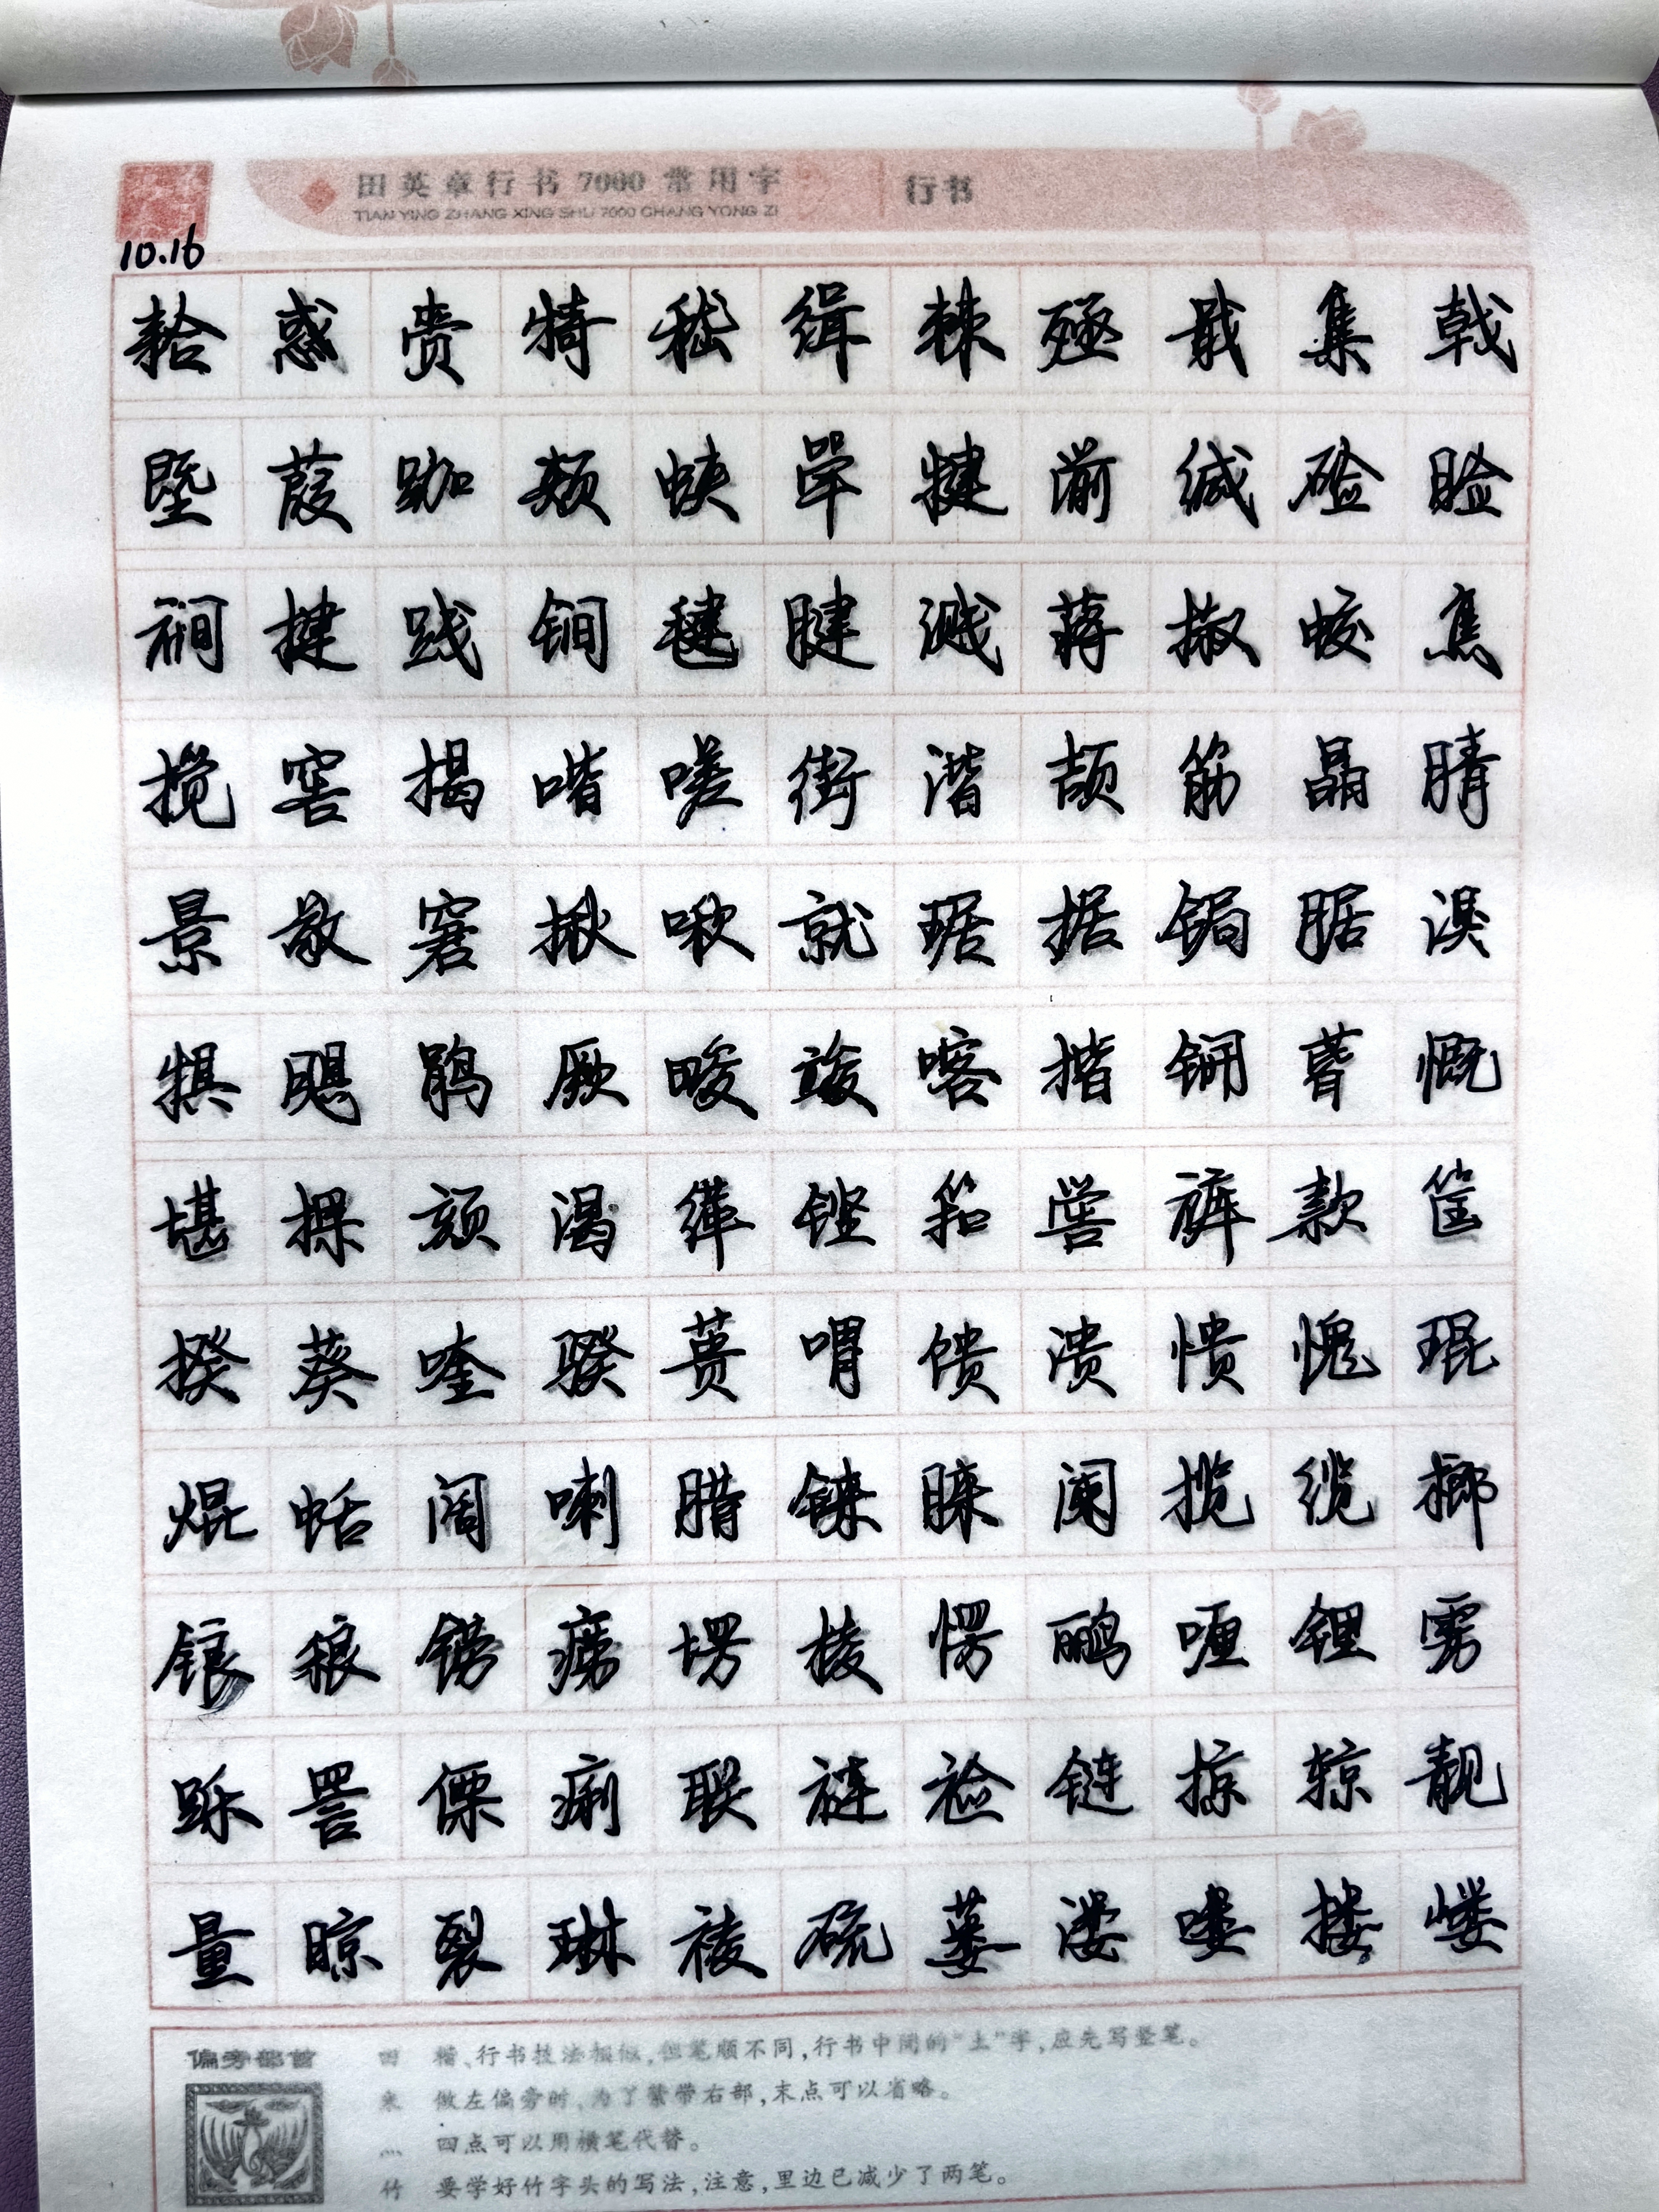 田英章行书7000常用字 行书
TIAN YING ZHANG XING SHU 7000 CHANG YONG ZI
10.16
袷惑赍犄嵇缉棘殛戢集戟
暨葭跏颊蛱斝犍湔缄硷睑
裥揵践锏毽腱溅蒋掓蛟焦
搅窖揭喈嗟街湝颉筋晶腈
景敬窘揪啾就琚据锔腒湨
犋飓鹃厥畯竣喀揩锎蒈慨
堪敤颏渴缂铿筘喾裤款筐
揆葵喹骙蒉喟馈溃愦愧琨
焜蛞阔喇腊铼睐阑揽缆揶
锒稂铹痨塄棱愣鹂喱锂雳
跞詈傈痢联裢裣链掠辌靓
量晾裂琳祾硫蒌溇喽搂嵝
偏旁部首
田 楷、行书技法相似,但笔顺不同,行书中间的“土”字,应先写竖笔。
米 做左偏旁时,为了紧带右部,末点可以省略。
灬 四点可以用横笔代替。
竹 要学好竹字头的写法,注意,里边已减少了两笔。